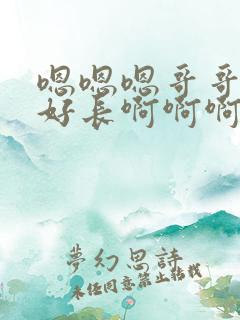 嗯嗯嗯哥哥
好长啊啊啊
夢幻思詩
未经同意禁止转载